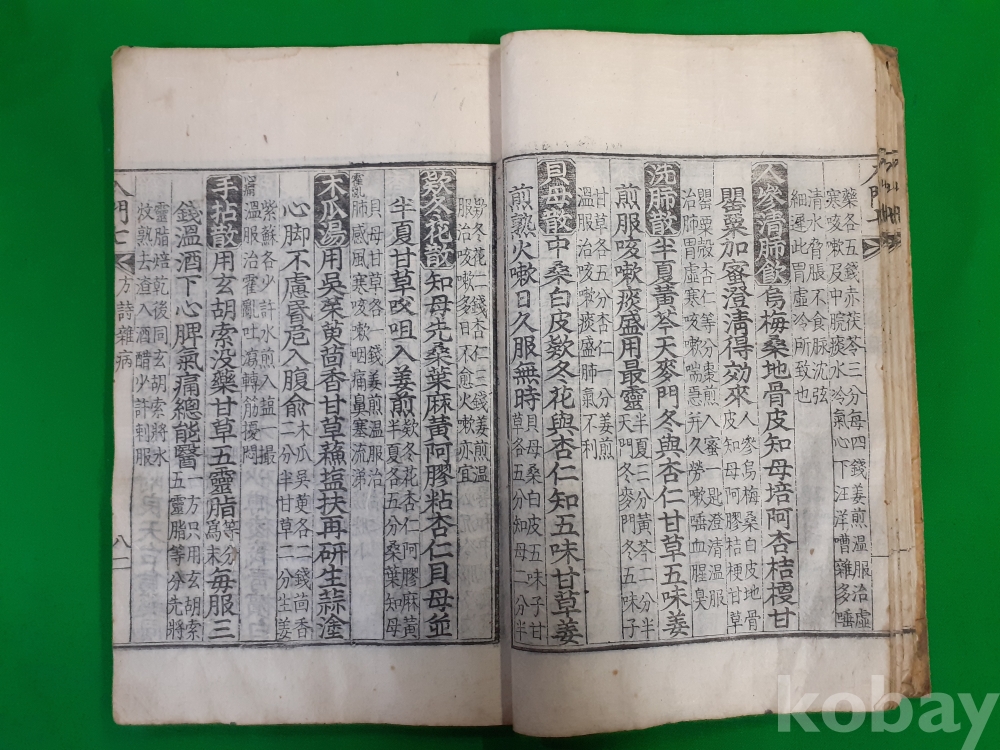 藥各五錢赤茯苓三分每四錢姜煎溫服治虛
寒咳嗽及中脘痰水冷氣心下汪洋嘈雜多唾
清水脅脹不食脉沈弦
細遲此胃虛冷所致也
人參清肺飲烏梅桑地骨皮知母培阿杏桔梗甘
罌粟加蜜澄清得効來人參烏梅桑白皮地骨
皮知母阿膠桔梗甘草
罌粟殼杏仁等分棗煎入蜜一匙澄清溫服
治肺胃虛寒咳嗽喘急并久勞嗽唾血腥臭
洗肺散半夏黃芩天麥門冬與杏仁甘草五味姜
煎服咳嗽痰盛用最靈半夏三分黃芩二分半
天門冬麥門冬五味子
甘草各五分杏仁一分姜水
溫服治咳嗽痰盛肺氣不利
貝母散中桑白皮欵冬花與杏仁知五味甘草姜
煎熟火嗽日久服無時貝母桑白皮五味子甘
草各五分知母一分半
欵冬花二錢杏仁三錢姜煎溫
服治咳嗽多日不愈火嗽亦宜
欵冬花散知母先桑葉麻黃阿膠粘杏仁貝母並
半夏甘草㕮咀入姜煎欵冬花杏仁阿膠麻黃
半夏各五分桑葉知母
貝母甘草各錢姜煎溫服治
肺感風寒咳嗽咽痛鼻塞流涕
木瓜湯用吳茱萸茴香甘草蘇塩扶再研生蒜塗
霍亂
心脚不慮昬危入腹俞木瓜吳萸各二錢茴香
二分半甘草二分生姜
紫蘇各少許水煎入塩一撮
溫服治霍亂吐瀉轉筋擾悶
手拈散用玄胡索没藥甘草五靈脂等分爲末每服三
錢溫酒下心脾氣痛總能醫一方只用玄胡索
五靈脂等分先將
靈脂焙乾後同玄胡索將水
熟去渣入酒醋少許服
入門七 方詩雜病 八一
kobay